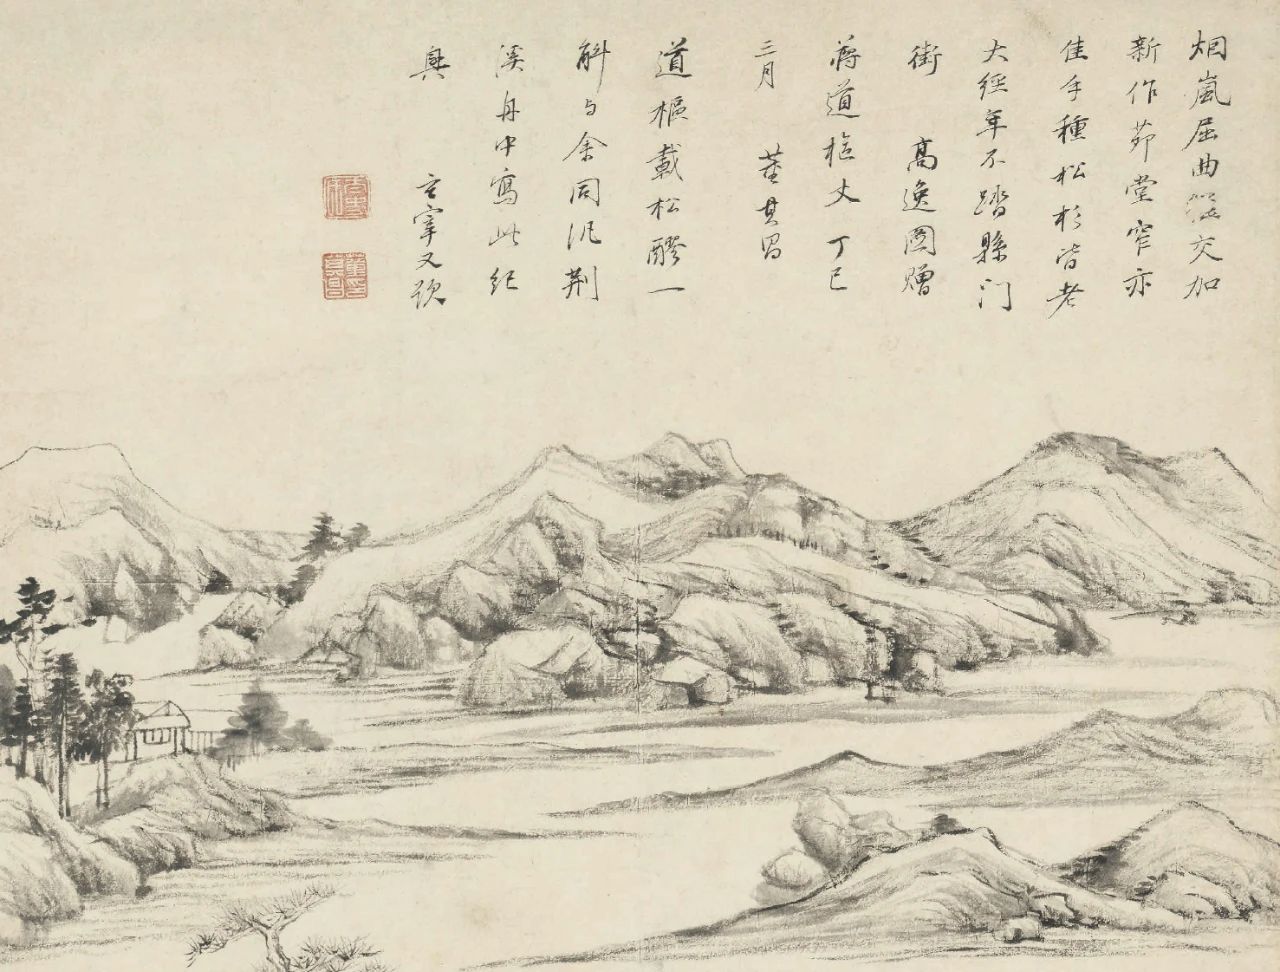 烟嵐屈曲交加
新作茆堂窄亦
佳手種松杉皆老
大經年不踏縣门
街 高逸圖贈
蔣道樞丈 丁巳
三月 董其昌
道樞載松醪一
斛与余同汎荆
溪舟中寫此紀
興 玄宰又題